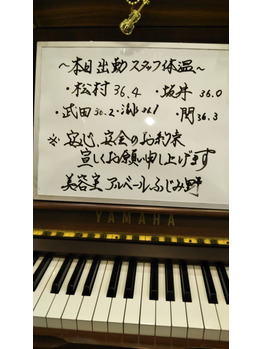 〜本日出勤スタッフ体温〜
・松村 36.4 ・坂井 36.0
・武田 36.2 ・ 36.1 ・関 36.3
※ 安心、安全のお約束
宜しくお願い申し上げます
美容室 アルバールふじみ野
YAMAHA